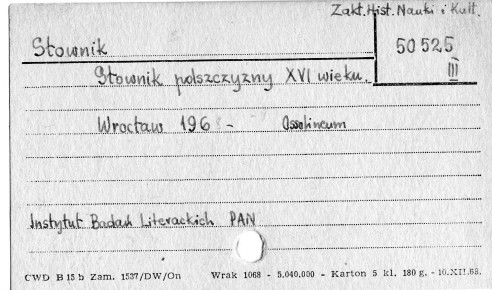 Zakt. Hist. Nauki i Kult.
Słownik
50 525
III
Słownik polszczyzny XVI wieku.
Wrocław 196 - Ossolineum
Instytut Badań Literackich PAN
CWD B 15 b Zam. 1537/DW/On Wrak 1068 - 5.040.000 - Karton 5 kl. 180 g. - 10.XII.68.